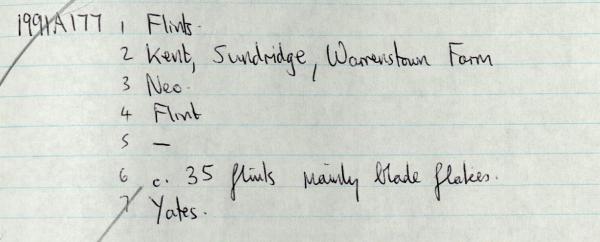 1991A177 1 Flints.
2 Kent, Sundridge, Warrenstown Farm
3 Neo.
4 Flint
5 —
6 c. 35 flints mainly blade flakes.
7 Yates.